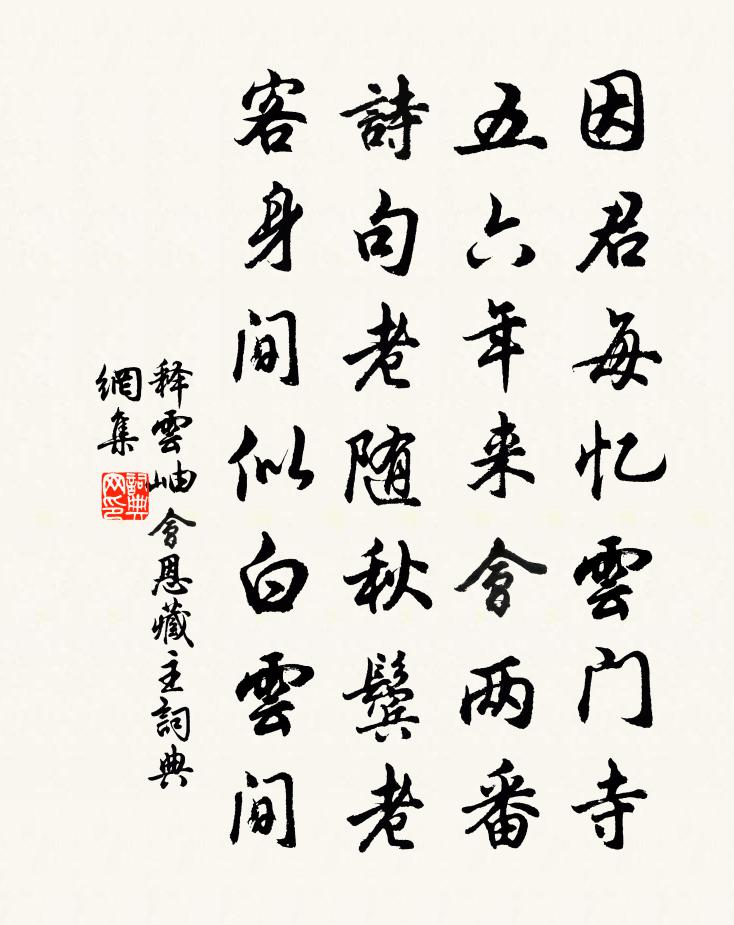 因君每忆雲门寺
五六年来會两番
詩句老随秋鬓老
客身间似白雲间
释雲岫會恩藏主詞典
網集
詞典
网印